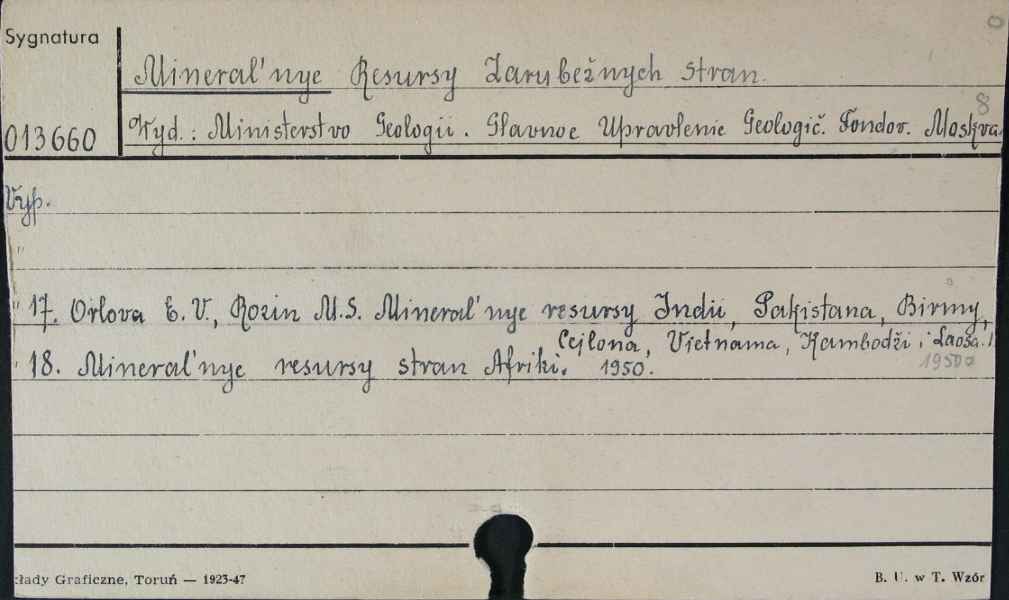 Sygnatura
Mineral'nye Resursy Zarubežnych Stran.
8
013660
Wyd.: Ministerstvo Geologii. Glavnoe Upravlenie Geologič. Fondov. Moskva
Vyp.
"
" 17. Orlova E.V., Rozin M.S. Mineral'nye resursy Indii, Pakistana, Birmy,
Cejlona, Vietnama, Kambodži i Laosa.
" 18. Mineral'nye resursy stran Afriki. 1950.
1950
łady Graficzne, Toruń — 1923-47
B. U. w T. Wzór